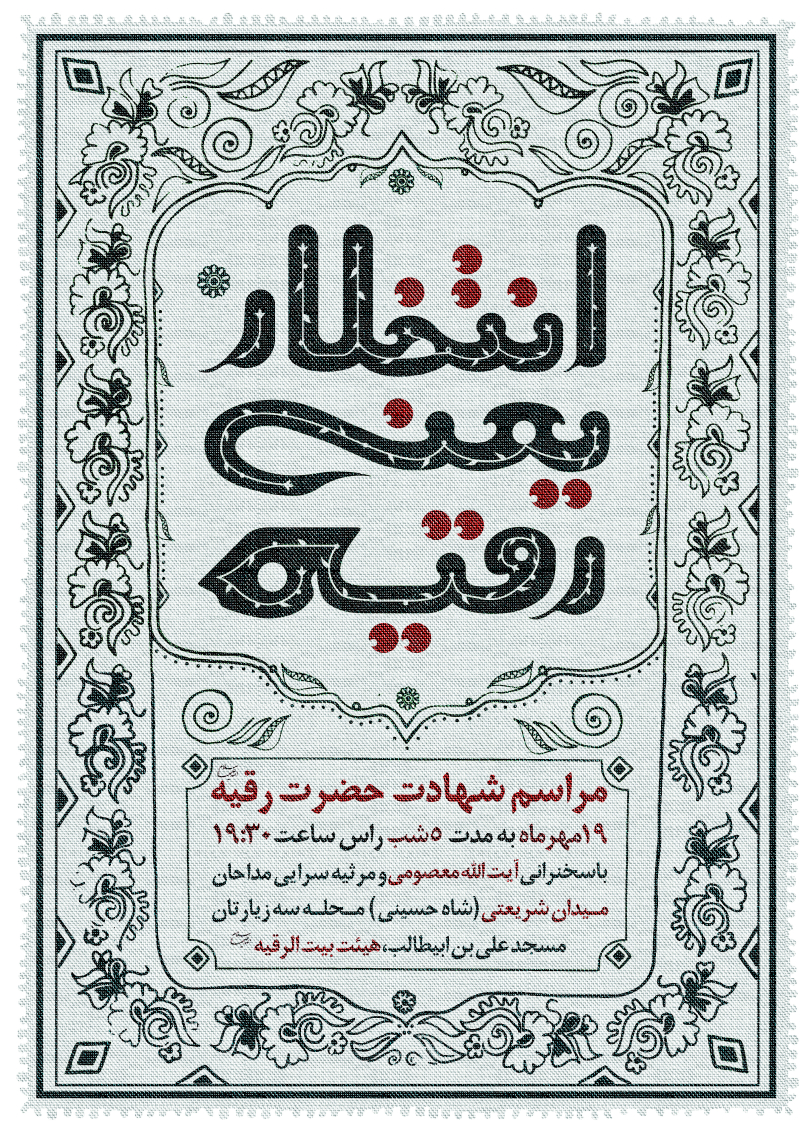 انتظار
یعنی
رقیه
مراسم شهادت حضرت رقیه
۱۹مهرماه به مدت ۵شب راس ساعت ۱۹:۳۰
باسخنرانی آیت الله معصومی و مرثیه سرایی مداحان
میدان شریعتی (شاه حسینی) محله سه زیارتان
مسجد علی بن ابیطالب، هیئت بیت الرقیه